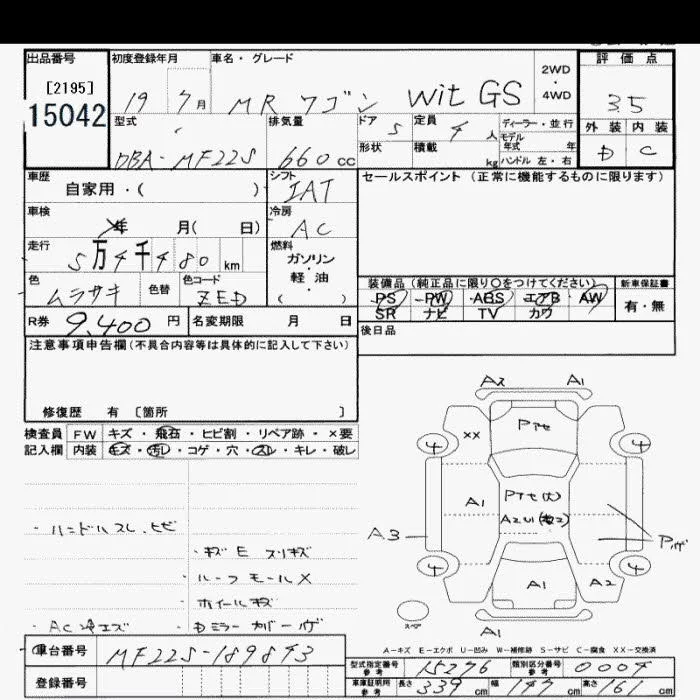 出品番号 初度登録年月 車名・グレード 2WD・4WD 評価点
[2195]
15042 19 7月 MR ワゴン Wit GS 3.5
型式 排気量 ドア 5 定員 4人 ディーラー・並行 外装 内装
モデル年式 年
DBA-MF22S 660cc 形状 積載 kg ハンドル 左・右 D C
車歴 シフト セールスポイント (正常に機能するものに限ります)
自家用・( ) IAT
車検 冷房
年 月( 日) AC
走行 燃料
5万4千480km ガソリン・軽油
色 色替 色コード ( )
ムラサキ ZED
装備品 (純正品に限り○をつけてください) 新車保証書
PS PW ABS エアB AW 有・無
SR ナビ TV カワ
R券 9,400円 名変期限 月 日 後日品
注意事項申告欄(不具合内容等は具体的に記入して下さい)
修復歴 有 [箇所 ]
検査員 FW キズ・飛石・ヒビ割・リペア跡・×要
記入欄 内装 キズ・汚レ・コゲ・穴・スレ・キレ・破レ
・ハンドルスレ、ヒビ
・ルーフモールX
ホイールキズ
・Dミラーカバーハゲ
A2 A1
XX
4 4
A1
A3
P ハゲ
4 4
A1 A2
スペア
A1
A-キズ E-エクボ U-凹み W-補修跡 S-サビ C-腐食 XX-交換済
車台番号 MF22S-189843
登録番号
型式指定番号 参考 15276 類別区分番号 参考 0004
車庫証明用 参考 長さ 339cm 幅 147cm 高さ 161cm